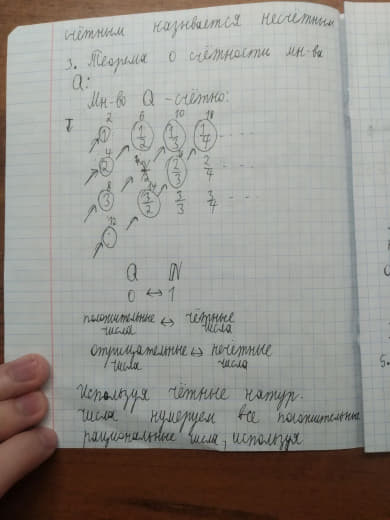 счётным называется несчётным
3. Теорема о счётности мн-ва
Q:
Мн-во Q - счётно:
I
2 6 10 18
1 1/2 1/3 1/4 ....
4
2 2/3 2/4 ...
8 14
3 3/2 3/3 3/4 ...
12
Q N
0 ↔ 1
положительные ↔ чётные
числа числа
отрицательные ↔ нечётные
числа числа
Используя чётные натур.
числа нумеруем все положительные
рациональные числа, используя
5.